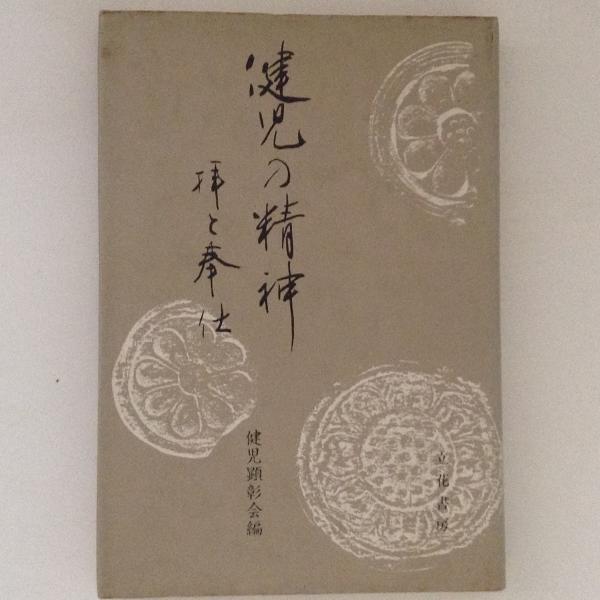 健児の精神
拝と奉仕
健児顕彰会編
立花書房